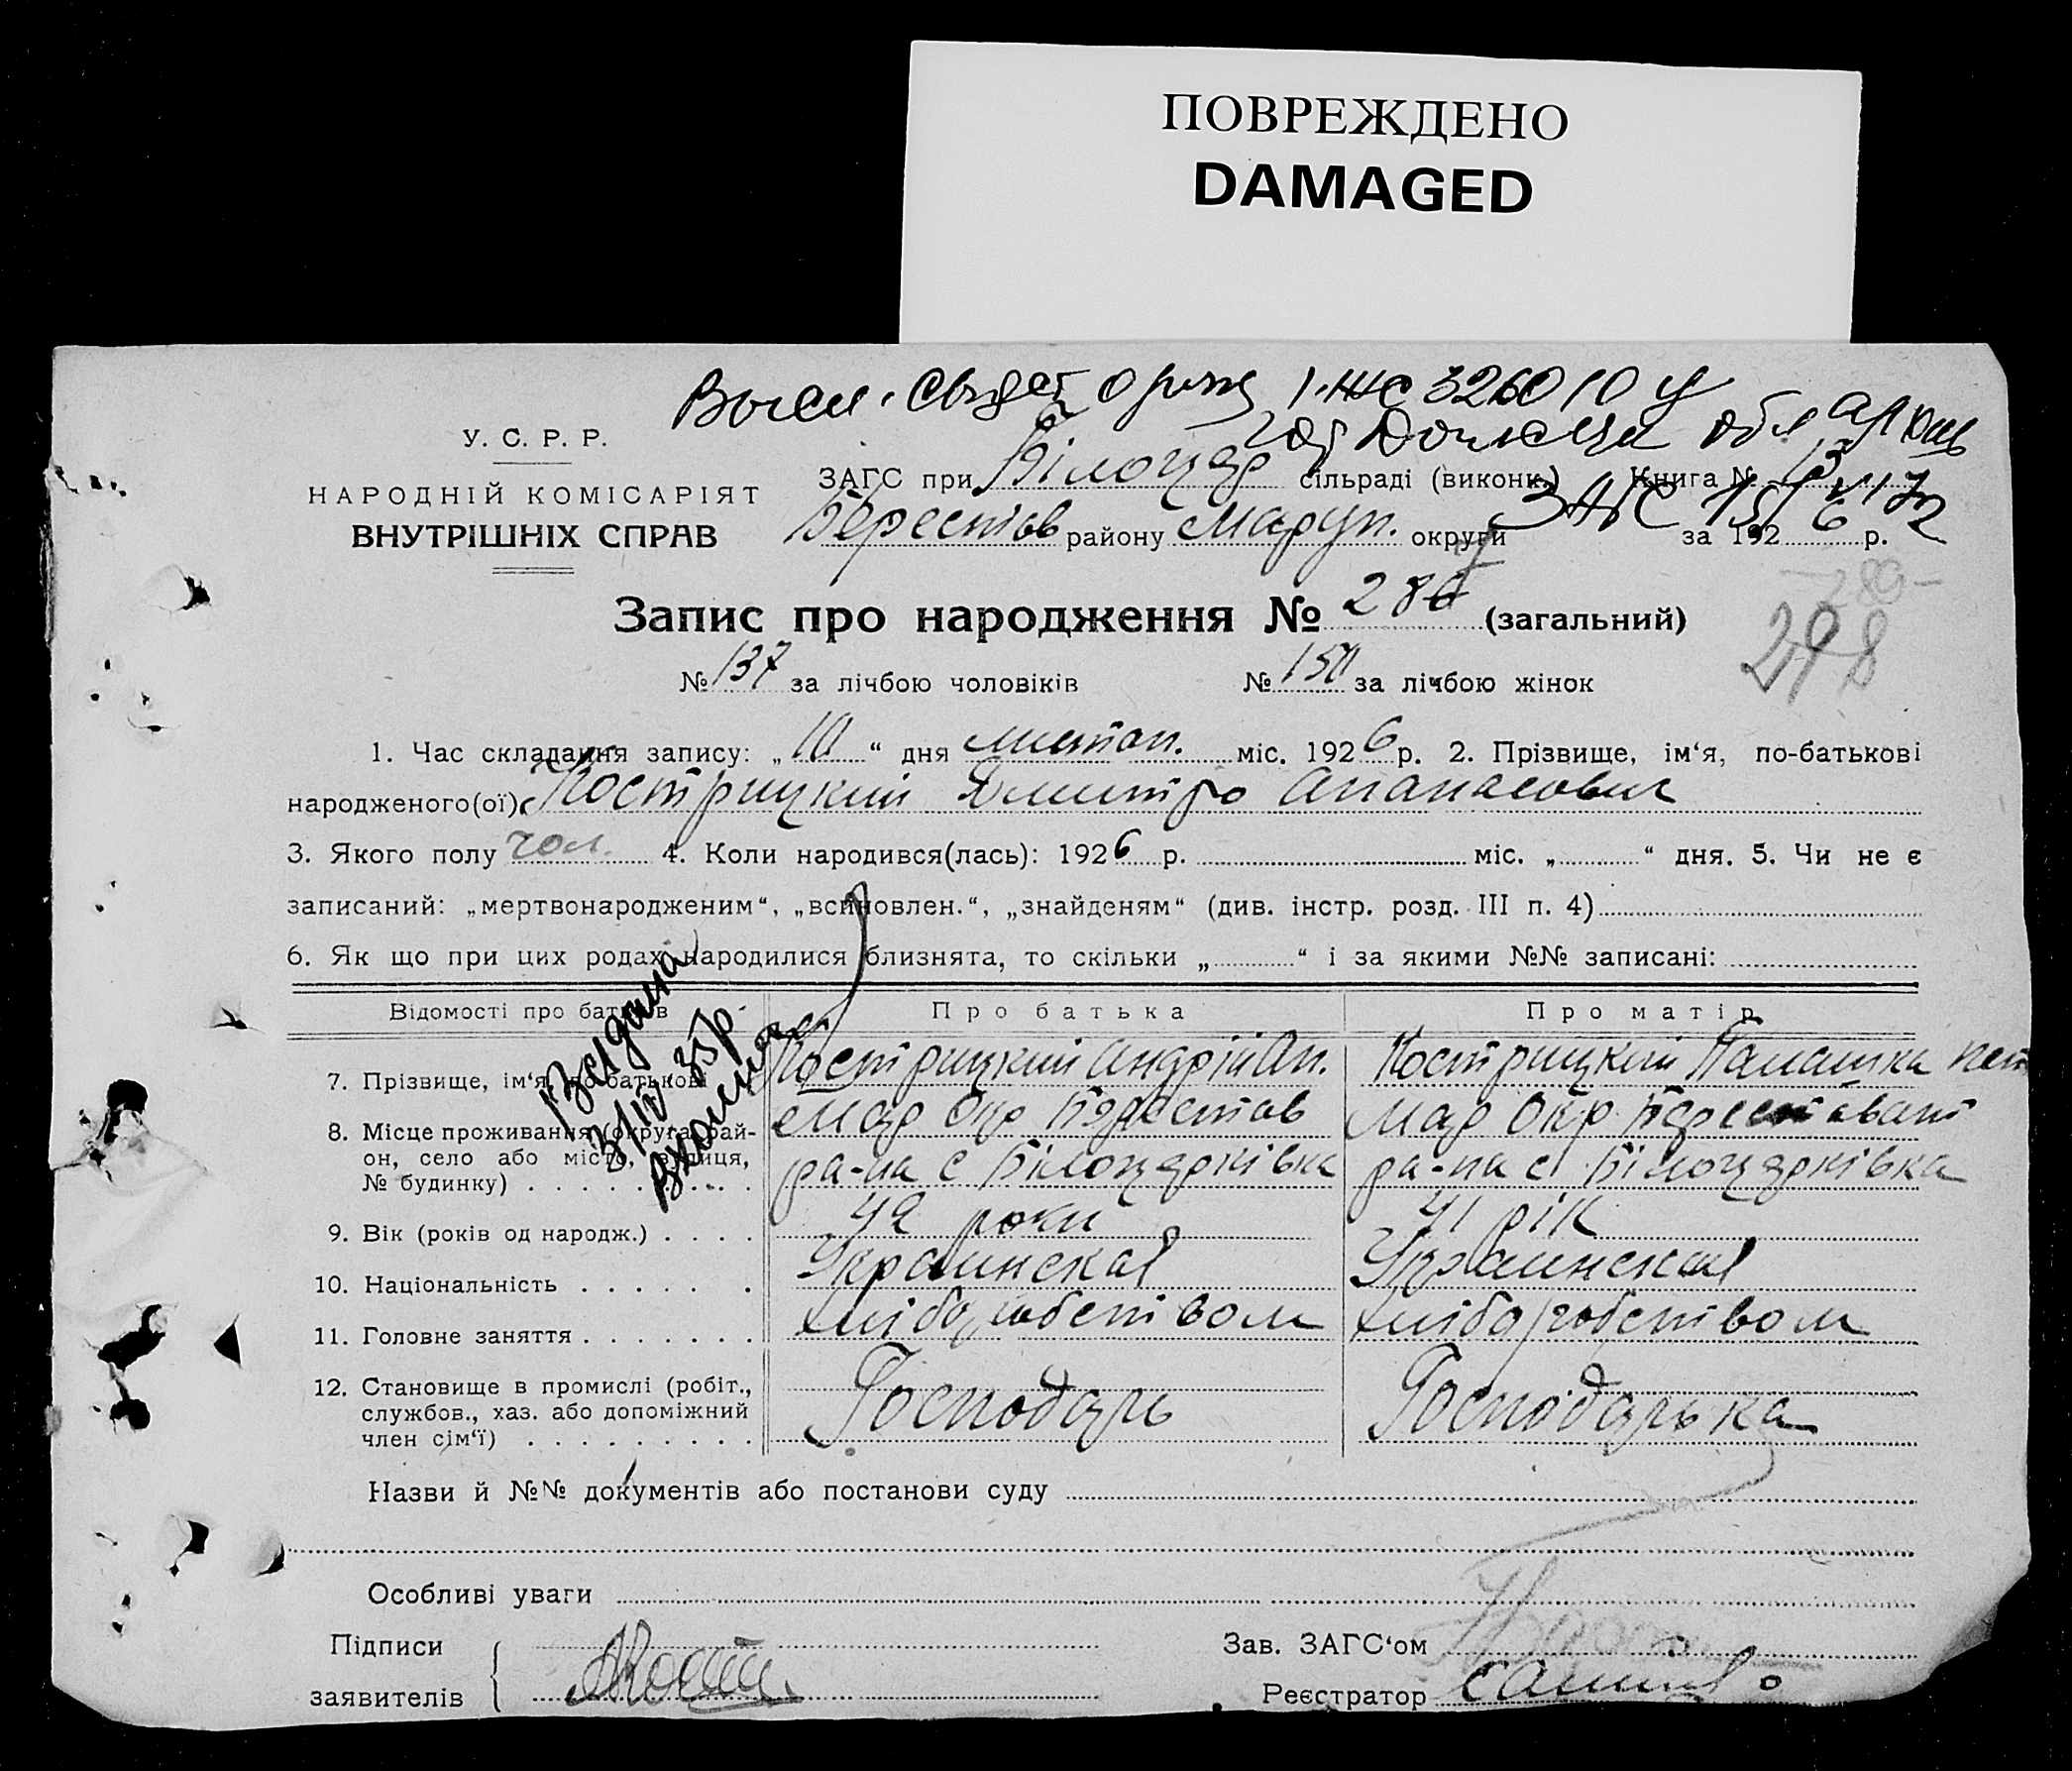 ПОВРЕЖДЕНО
DAMAGED
У. С. Р. Р.
НАРОДНІЙ КОМІСАРІЯТ
ВНУТРІШНІХ СПРАВ
ЗАГС при Білоцер сільраді (виконк.) Книга №
Берестов району Маріуп. округи за 192 6 р.
Запис про народження № 28 (загальний)
298
№ 137 за лічбою чоловіків № 150 за лічбою жінок
1. Час складання запису: „ 10 “ дня листоп. міс. 1926 р. 2. Прізвище, ім‘я, по-батькові
народженого(ої) Кострицкий Дмитро Апанасович
3. Якого полу чол. 4. Коли народився(лась): 1926 р. міс. „ “ дня. 5. Чи не є
записаний: „мертвонародженим“, „всиновлен.“, „знайденям“ (див. інстр. розд. III п. 4)
6. Як що при цих родах народилися близнята, то скільки „ “ і за якими №№ записані:
Відомості про батьків Про батька Про матір
7. Прізвище, ім‘я, по-батькові Кострицкий Андрій Ап. Кострицкий
8. Місце проживання (округа, рай-
он, село або місто, вулиця,
№ будинку) Мар Окр Берестов Мар Окр
ра-на с Білоцерківка ра-на с Білоцерківка
9. Вік (років од народж.) 42 роки 41 рік
10. Національність Украинская Украинская
11. Головне заняття хліборобством хліборобством
12. Становище в промислі (робіт.,
службов., хаз. або допоміжний
член сім‘ї) Господарь Господарька
Назви й №№ документів або постанови суду
Особливі уваги
Підписи
заявителів
Зав. ЗАГС‘ом
Реєстратор